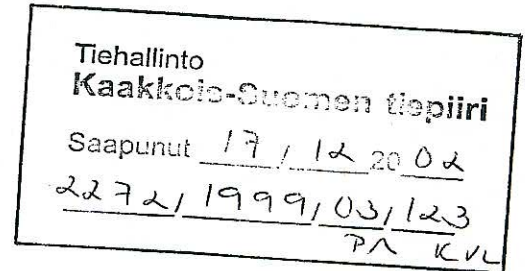 Tiehallinto
Kaakkois-Suomen tiepiiri
Saapunut 17 / 12 2002
2272/ 1999/ 03/ 123
KVL